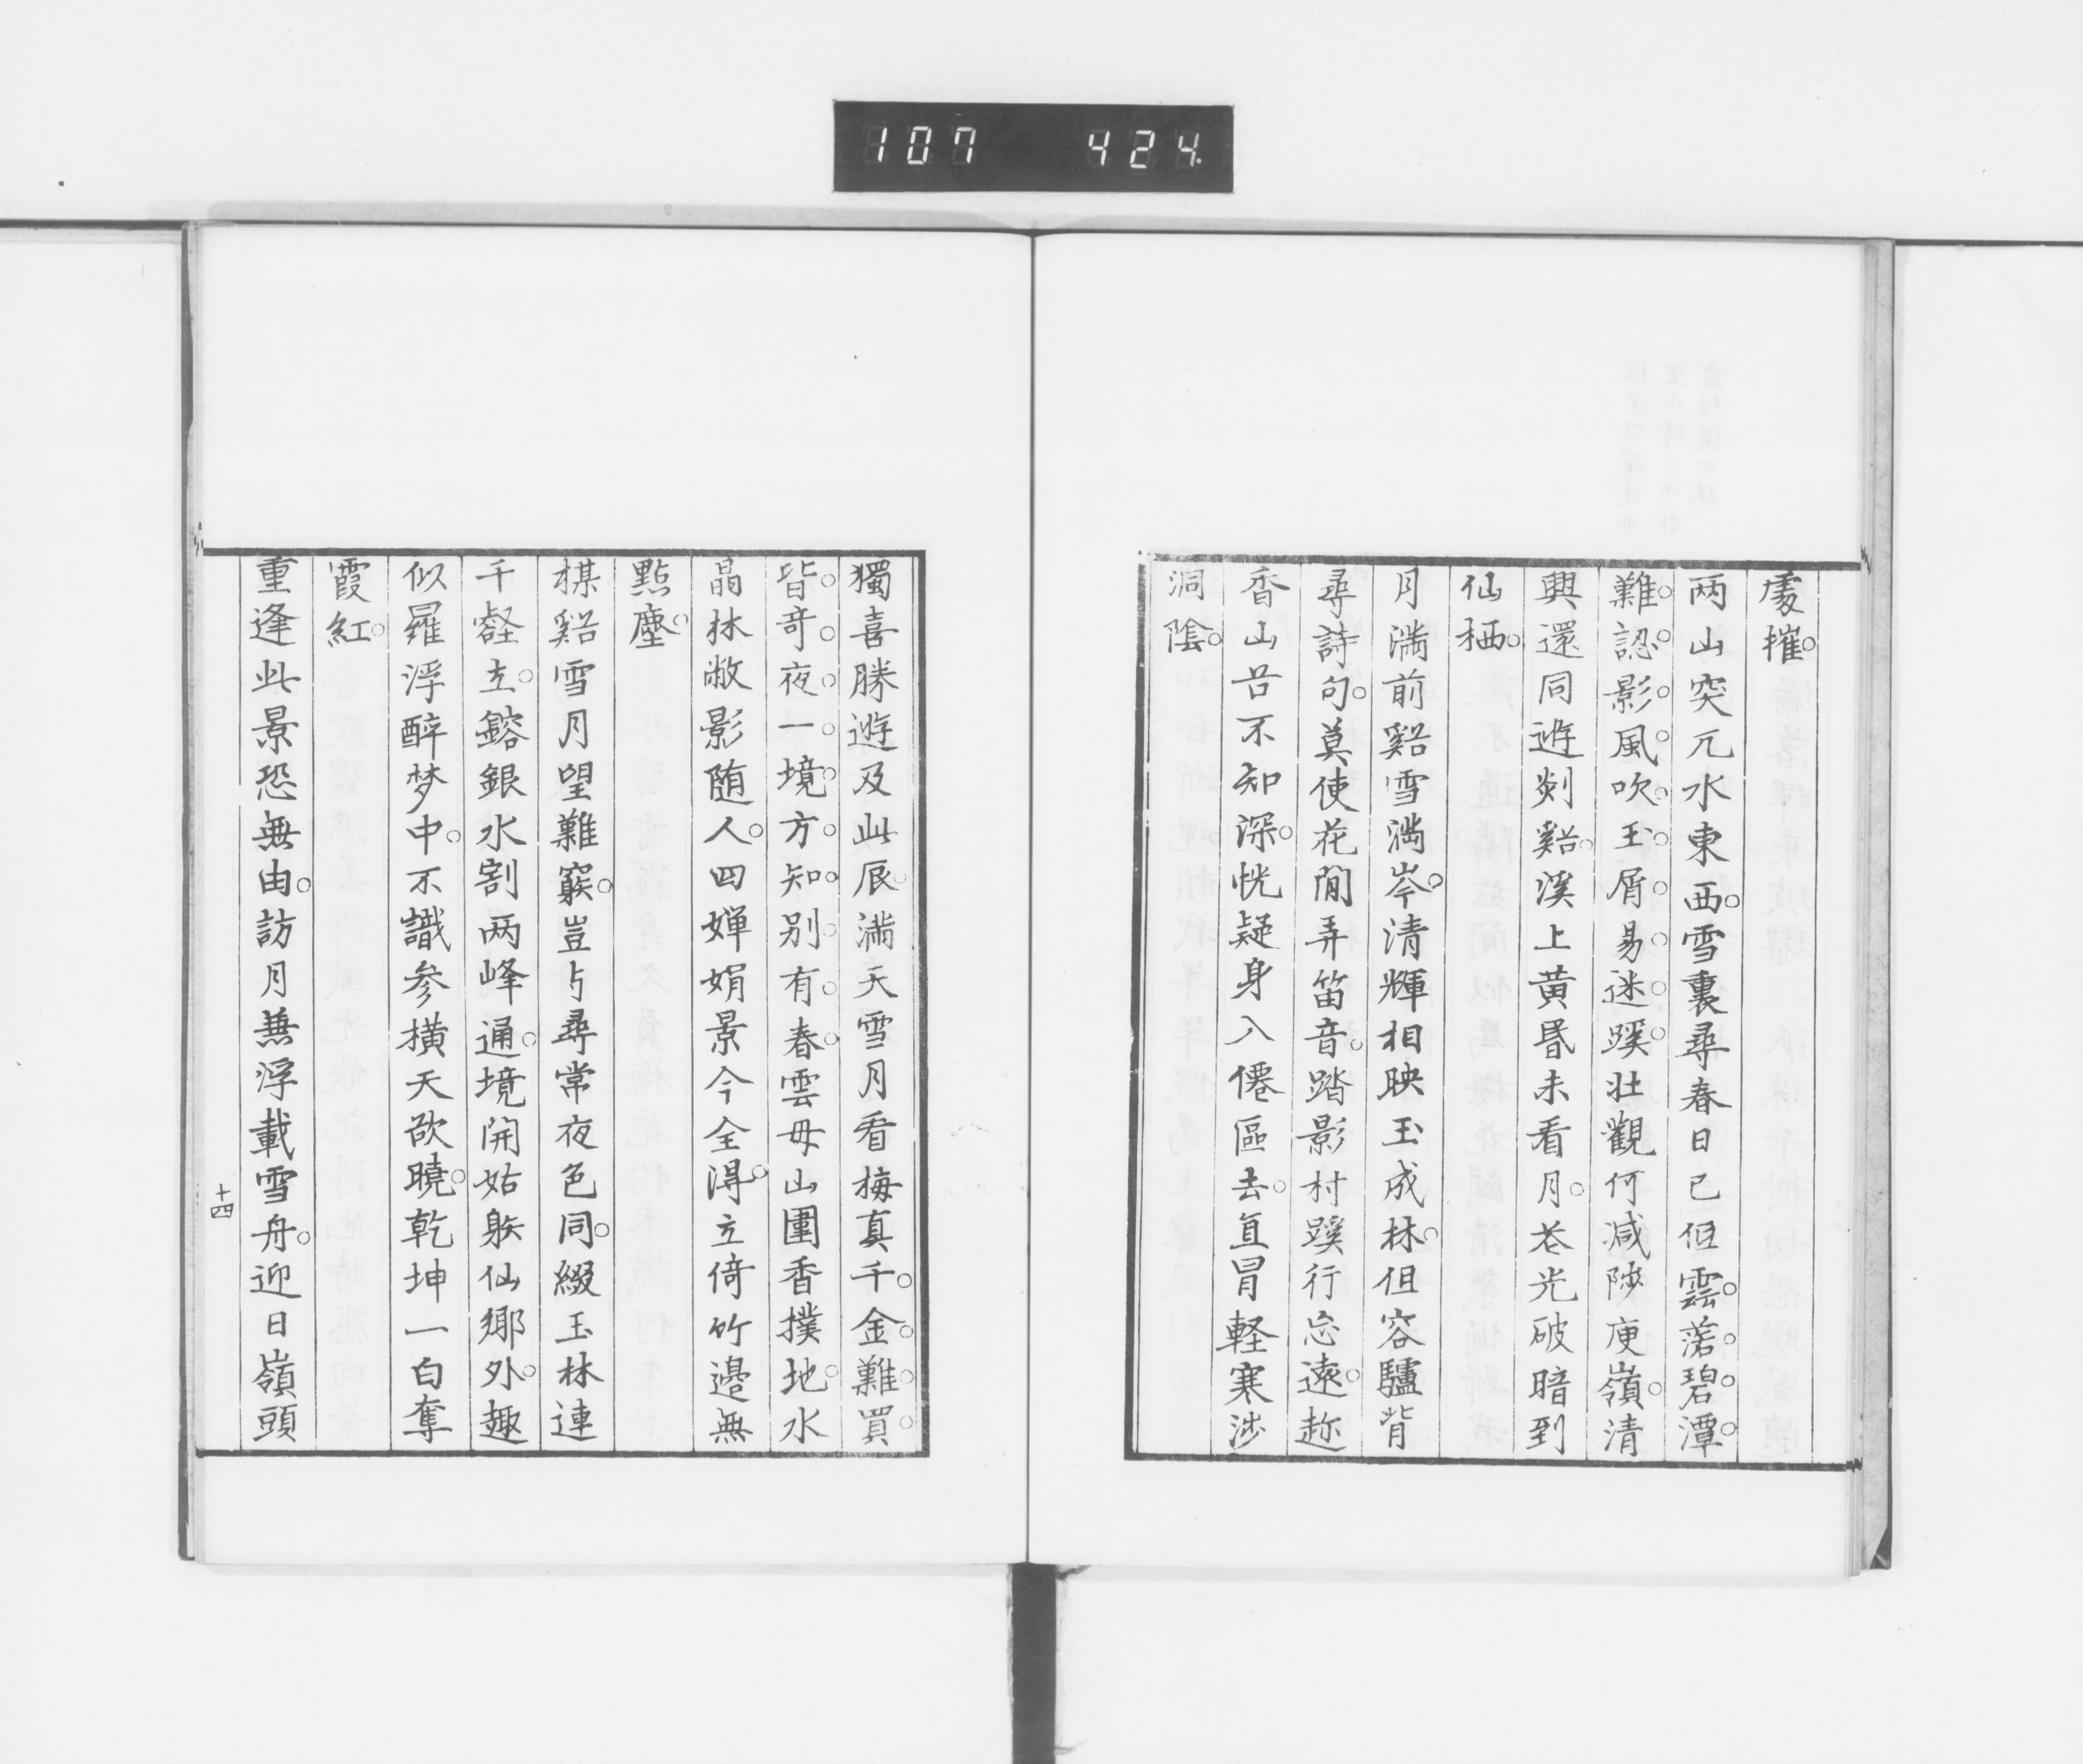 107 424
処摧
両山突兀水東西雪裏尋春日已低雲落碧潭
難認影風吹玉屑易迷蹊壮觀何減陟庾嶺清
興還同遊剡谿溪上黄昏未看月花光破暗到
仙栖
月満前谿雪満岑清輝相映玉成林但容驢背
尋詩句莫使花間弄笛音踏影村蹊行忘遠趂
香山谷不知深恍疑身入僊區去直冒軽寒渉
洞陰
獨喜勝遊及此辰満天雪月看梅真千金難買
皆奇夜一境方知別有春雲母山圍香撲地水
晶林敝影随人四嬋娟景今全得立倚竹邉無
點塵
楳谿雪月望難窮豈与尋常夜色同綴玉林連
千壑立鎔銀水割両峰通境開姑躲仙郷外趣
似羅浮醉梦中不識参横天欲曉乾坤一白奪
霞紅
重逢此景恐無由訪月兼浮載雪舟迎日嶺頭
十四